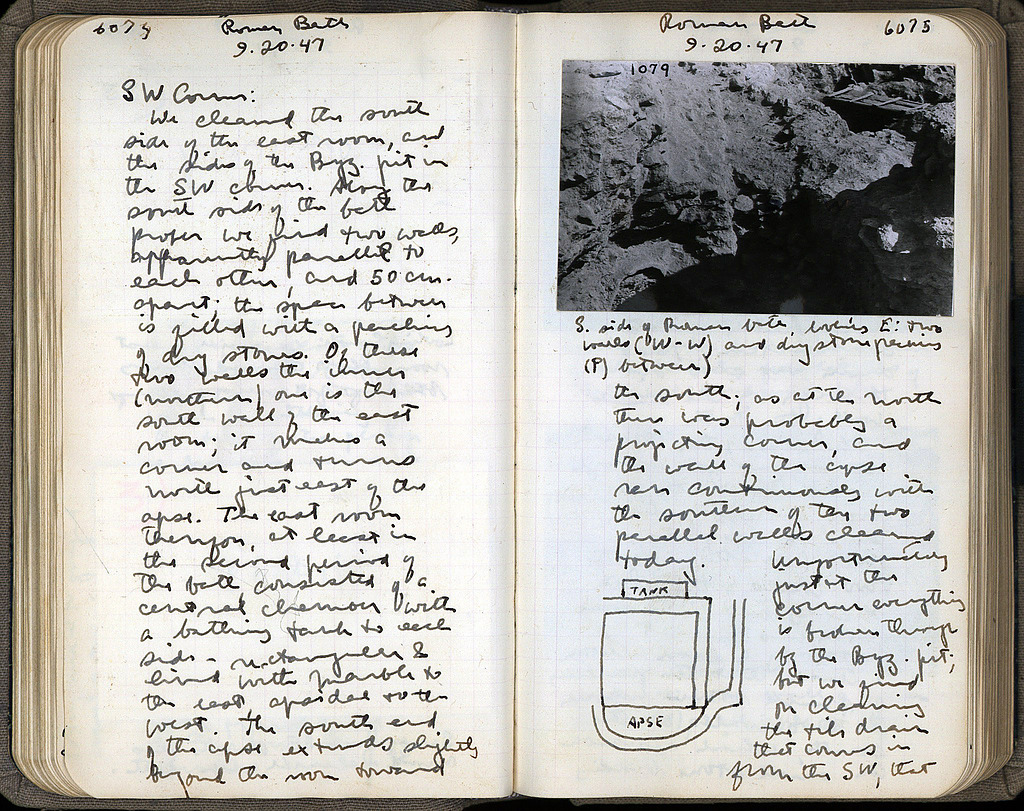 6074
Roman Bath
9.20.47
S W Corner:
We cleaned the south
side of the east room, and
the sides of the Byz. pit in
the SW corner. Along the
south side of the bath
proper we find two walls,
apparently parallel to
each other, and 50 cm.
apart; the space between
is filled with a packing
of dry stones. Of these
two walls the inner
(northern) one is the
south wall of the east
room; it makes a
corner and turns
north just east of the
apse. The east room
therefore, at least in
the second period of
the bath, consisted of a
central chamber with
a bathing tank to each
side - rectangular &
lined with marble to
the east, apsidal to the
west. The south end
of the apse extends slightly
beyond the room toward
Roman Bath
6075
9.20.47
1079
S. side of Roman bath, looking E: two
walls (W-W) and dry stone packing
(P) between)
the south; as at the north
there was probably a
projecting corner, and
the wall of the apse
ran continuously with
the southern of the two
parallel walls cleaned
today. Unfortunately
just at the
corner everything
is broken through
by the Byz. pit;
but we find
on cleaning
the tile drain
that comes in
from the SW, that
TANK
APSE